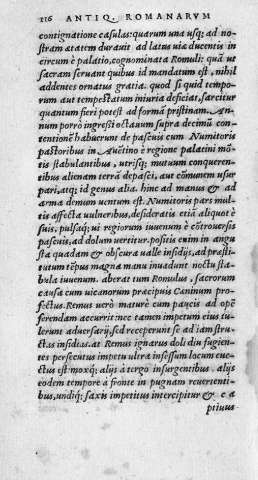 116 ANTIQ. ROMANARVM
contignatione casulas: quarum una usq; ad no-
stram ætatem durauit ad latus uiæ ducentis in
circum è palatio, cognominata Romuli: quã ut
sacram seruant quibus id mandatum est, nihil
addentes ornatus gratia. quod si quid tempo-
rum aut tempestatum iniuria deficiat, sarcitur
quantum fieri potest ad formã pristinam. An-
num porrò ingressi octauum supra decimũ con-
tentionẽ habuerunt de pascuis cum Numitoris
pastoribus in Auẽtino è regione palatini mõ-
tis stabulantibus, utrisq; mutuum conqueren-
tibus alienam terrã depasci, aut cõmunem usur
pari, atq; id genus alia. hinc ad manus & ad
arma demum uentum est. Numitoris pars mul-
tis affecta uulneribus, desideratis etiã aliquot è
suis, pulsaq; ui regiorum iuuenum è cõtrouersis
pascuis, ad dolum uertitur. positis enim in angu
sta quadam & obscura ualle insidijs, ad præsti-
tutum tẽpus magna manu inuadunt noctu sta-
bula iuuenum. aberat tum Romulus, sacrorum
causa cum uicanorum præcipuis Cæninum pro
fectus. Remus uerò maturè cum paucis ad opẽ
ferendam accurrit: nec tamen impetum eius tu-
lerunt aduersarij, sed receperunt se ad iam stru-
ctas insidias. at Remus ignarus doli diu fugien-
tes persecutus impetu ultra insessum locum eue-
ctus est moxq; alijs à tergo insurgentibus, alijs
eodem tempore à fronte in pugnam reuertenti-
bus, undiq; saxis impetitus intercipitur & ca
ptiuus